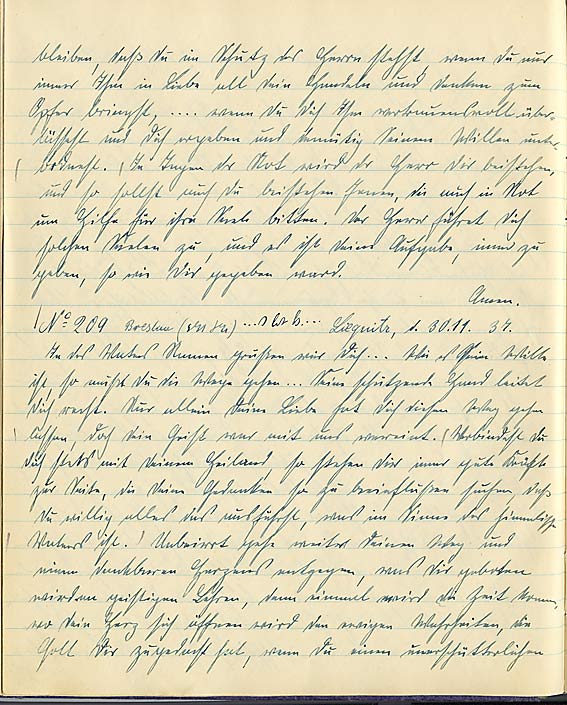 bleiben, daß du im Schutz des Herrn stehst, wenn du nur
immer Ihm in Liebe all dein Handeln und Denken zum
Opfer bringst, .... wenn du dich Ihm vertrauensvoll über-
lässest und dich ergeben und demütig Seinem Willen unter-
ordnest. (In Tagen der Not wird der Herr dir beistehen,
und so sollst auch du beistehen jenen, die auch in Not
um Hilfe für ihre Seele bitten. Der Herr führet dich
solchen Seelen zu, und es ist deine Aufgabe, immer zu
geben, so wie dir gegeben ward.
Amen.
No 209 Breslau Liegnitz, d. 30.11. 37.
In des Vaters Namen grüßen wir dich... Wo es Sein Wille
ist, so mußt du die Wege gehen... Seine schützende Hand leitet
dich recht. Nur allein deine Liebe hat dich diesen Weg gehen
lassen, doch dein Geist war mit uns vereint. (Verbindest du
dich stets mit deinem Heiland, so stehen dir immer gute Kräfte
zur Seite, die deine Gedanken so zu beeinflußen suchen, daß
du willig alles das ausführst, was im Sinne des himmlischen
Vaters ist.) Unbeirrt gehe weiter deinen Weg und
nimm dankbaren Herzens entgegen, was dir geboten
wird an geistigen Lehren, denn einmal wird die Zeit kommen,
wo dein Herz sich öffnen wird den ewigen Wahrheiten, die
Gott dir zugedacht hat, wenn du einen unerschütterlichen